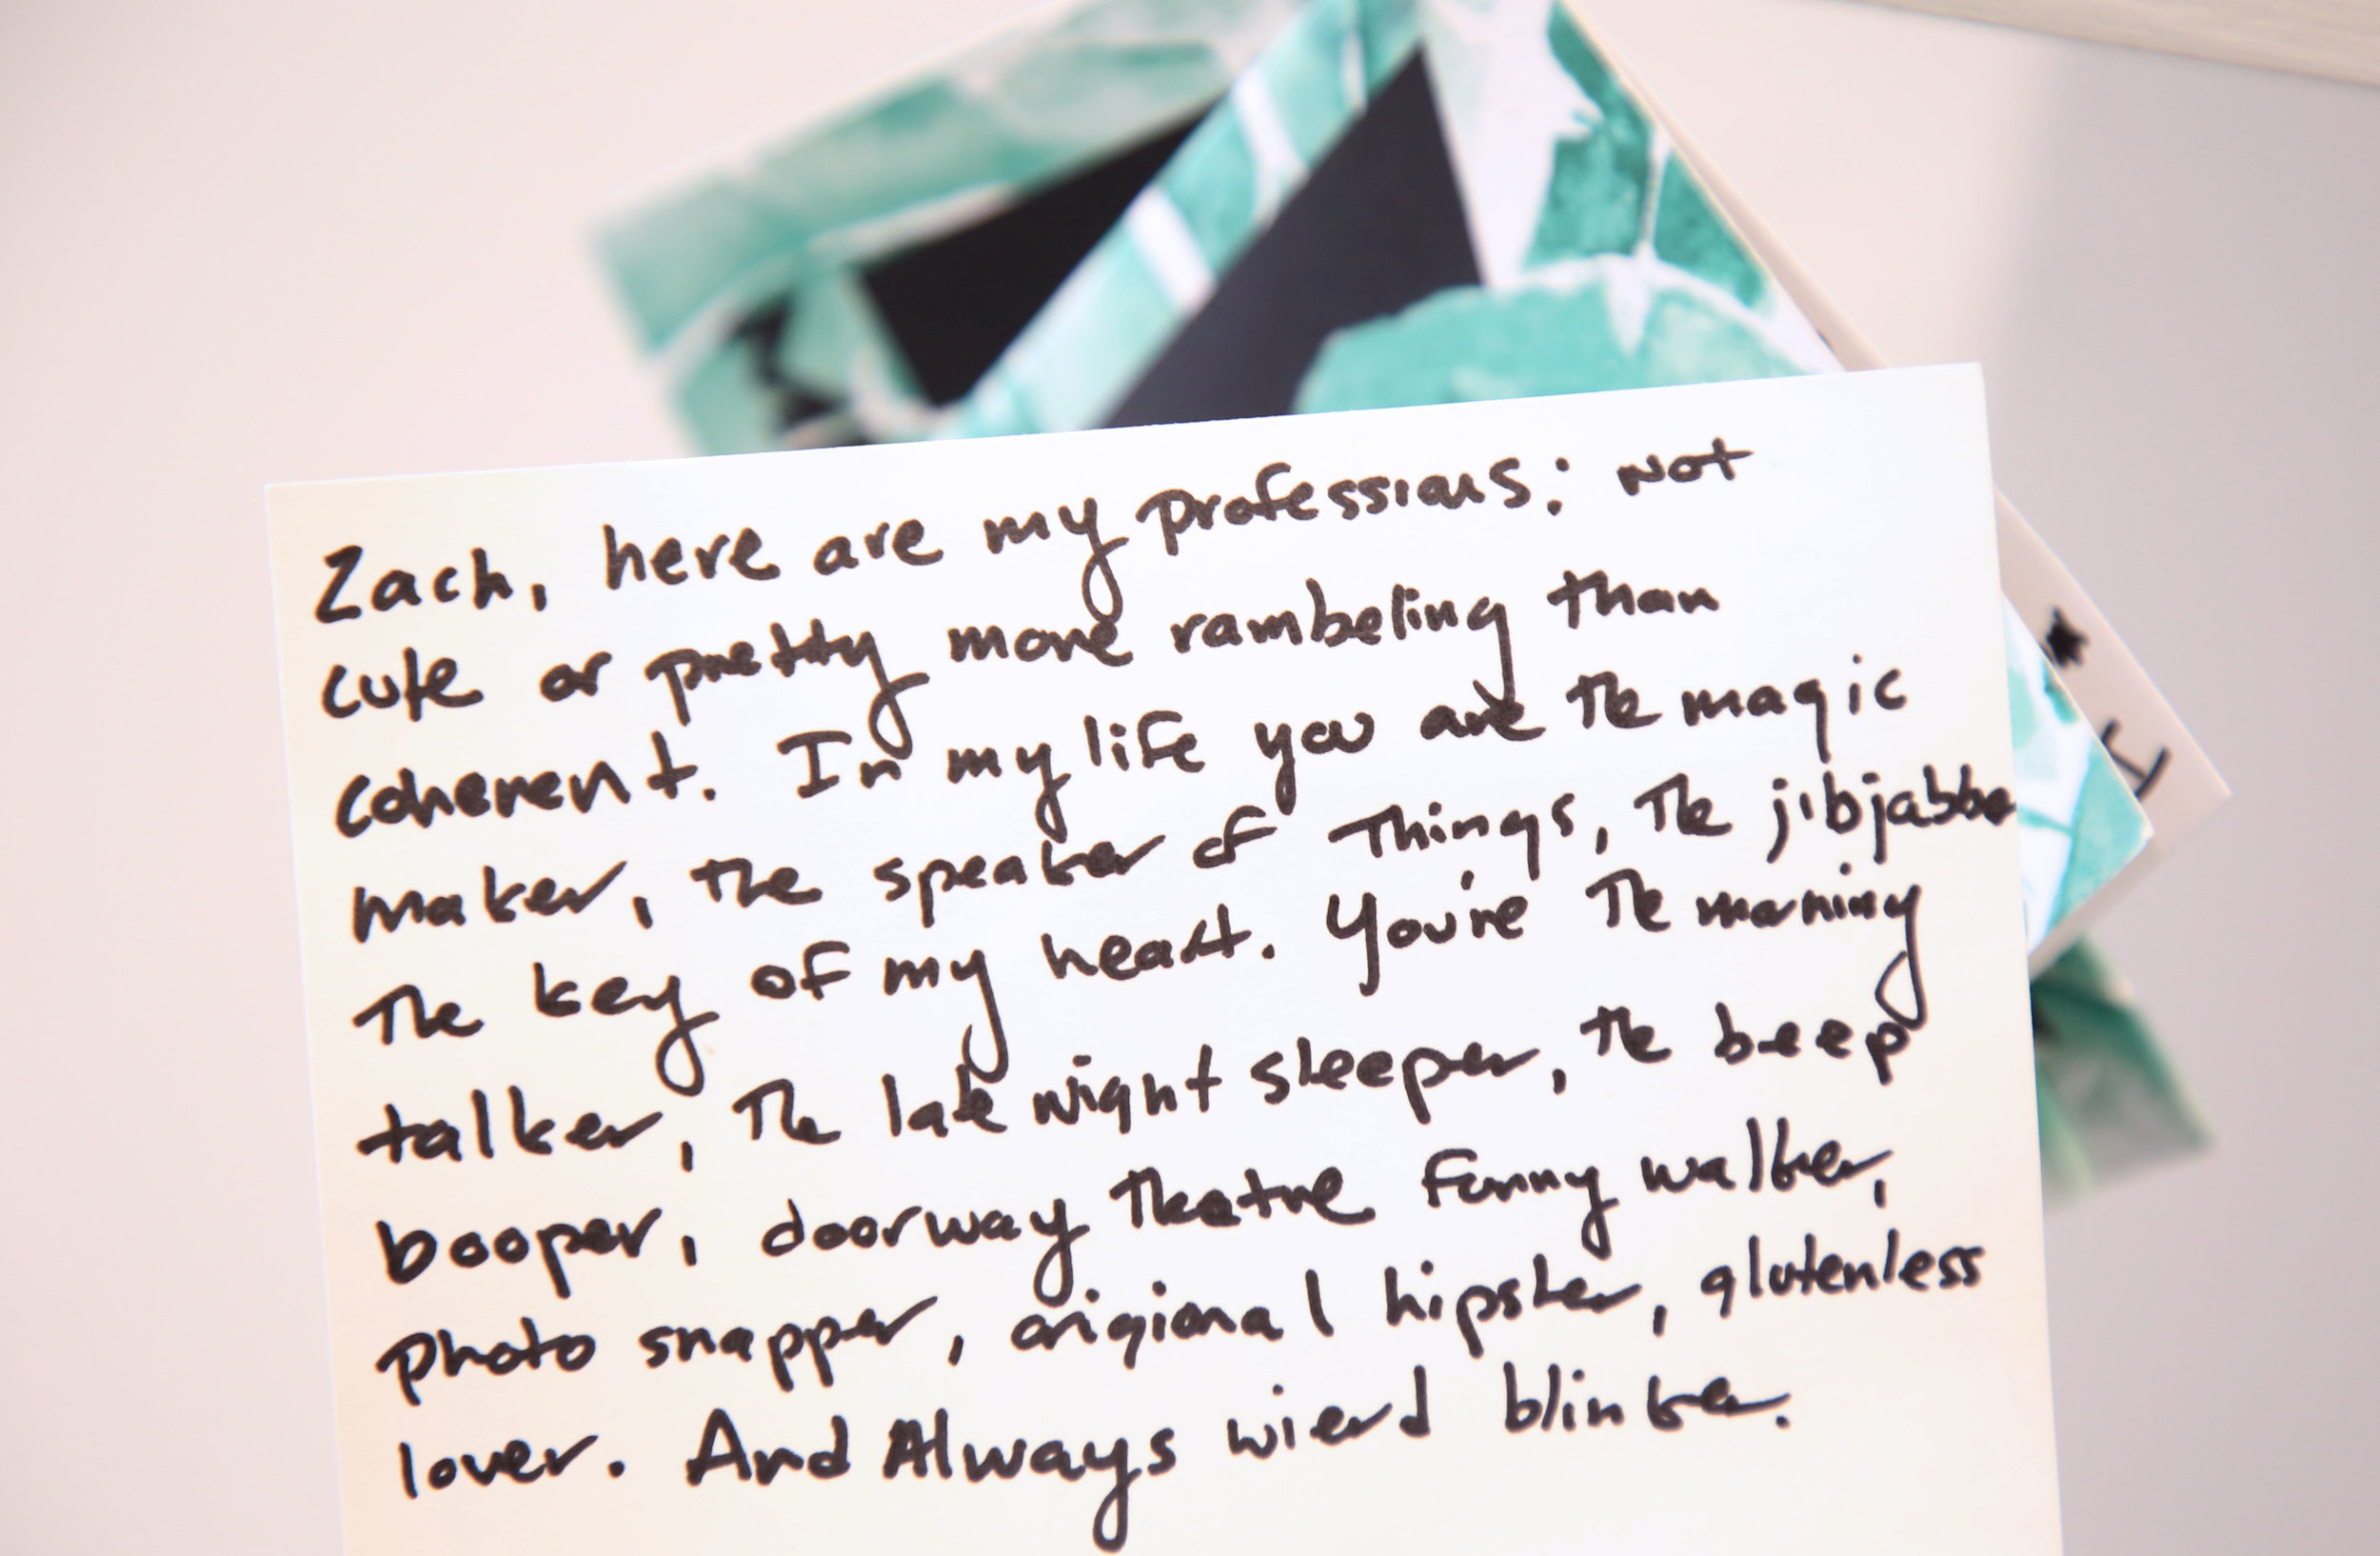 Zach, here are my professions: Not
cute or pretty more rambeling than
coherent. In my life you are the magic
maker, the speaker of Things, The jibjabber
The key of my heart. You're The morning
talker, The late night sleeper, the beep
booper, doorway Theatre funny walker,
photo snapper, origional hipster, glutenless
lover. And Always wierd blinker.